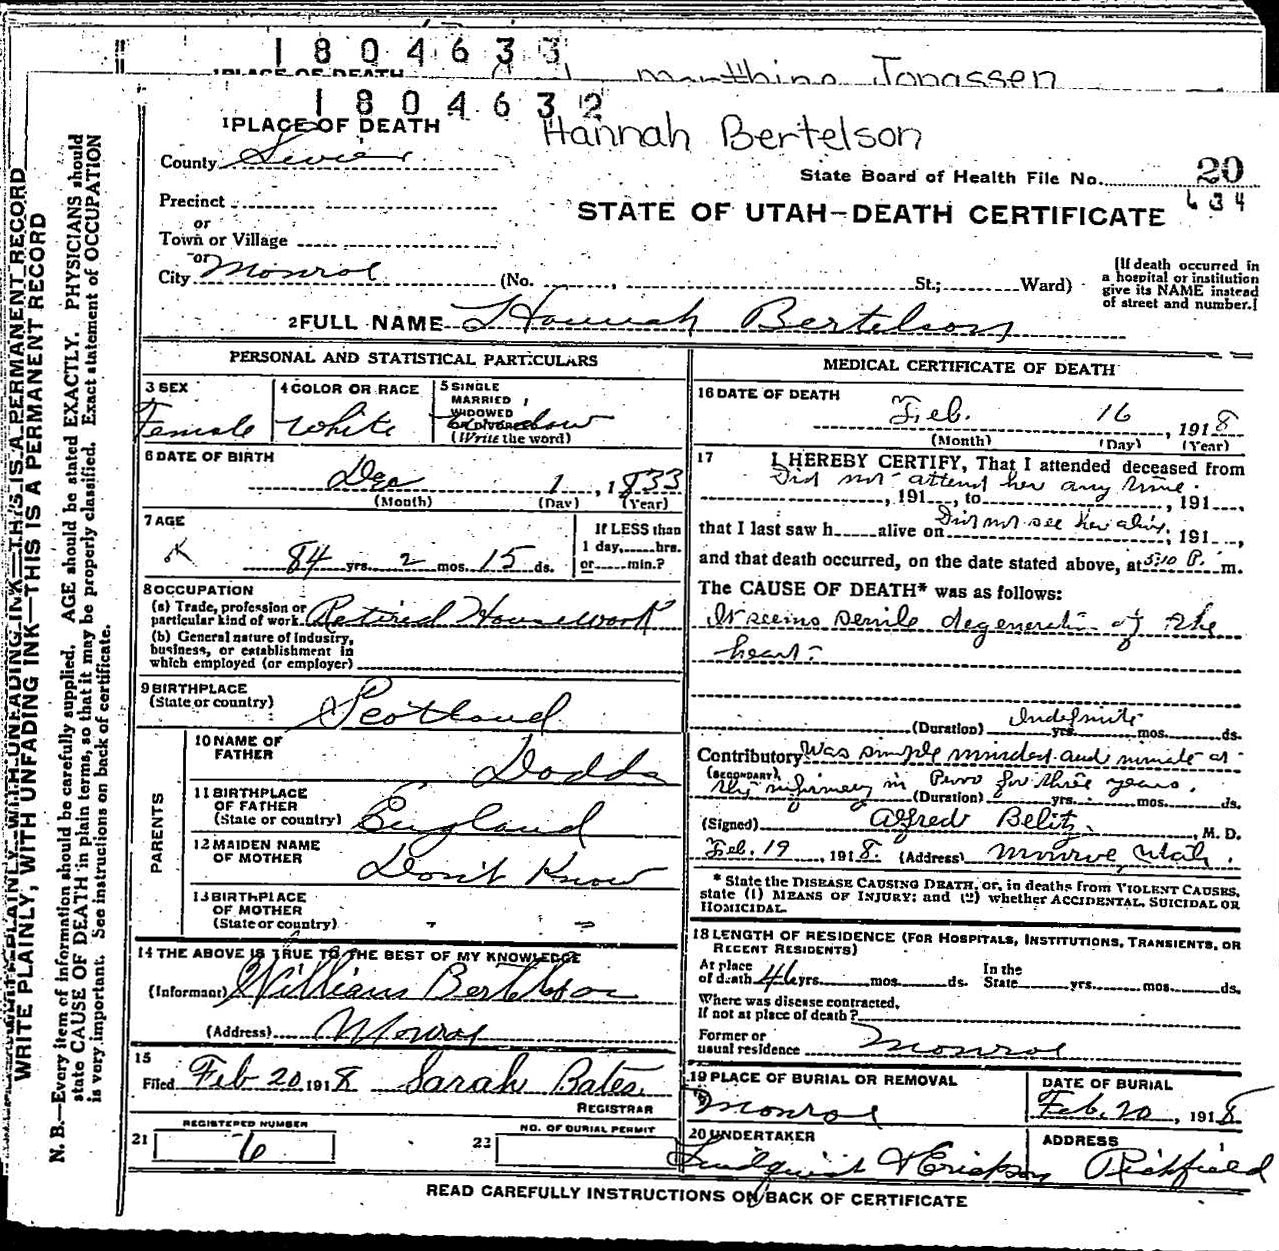 1 8 0 4 6 3 3
1 PLACE OF DEATH
Jonassen
1 8 0 4 6 3 2
1 PLACE OF DEATH
Hannah Bertelson
County Sevier
State Board of Health File No. 20
634
Precinct
or
Town or Village
STATE OF UTAH—DEATH CERTIFICATE
or
City Monroe (No. St.; Ward)
[If death occurred in
a hospital or institution
give its NAME instead
of street and number.]
2 FULL NAME Hannah Bertelson
PERSONAL AND STATISTICAL PARTICULARS
3 SEX
Female
4 COLOR OR RACE
White
5 SINGLE
MARRIED
WIDOWED
OR DIVORCED
Widow
(Write the word)
6 DATE OF BIRTH
Dec 1, 1833
(Month) (Day) (Year)
7 AGE
84 yrs. 2 mos. 15 ds.
If LESS than
1 day, hrs.
or min.?
8 OCCUPATION
(a) Trade, profession or
particular kind of work Retired Housework
(b) General nature of industry,
business, or establishment in
which employed (or employer)
9 BIRTHPLACE
(State or country) Scotland
PARENTS
10 NAME OF
FATHER Dodds
11 BIRTHPLACE
OF FATHER
(State or country) England
12 MAIDEN NAME
OF MOTHER Don't Know
13 BIRTHPLACE
OF MOTHER
(State or country) - -
14 THE ABOVE IS TRUE TO THE BEST OF MY KNOWLEDGE
(Informant) William Bertelson
(Address) Monroe
15
Filed Feb 20 1918 Sarah Bates
REGISTRAR
21 REGISTERED NUMBER
6
22 NO. OF BURIAL PERMIT
MEDICAL CERTIFICATE OF DEATH
16 DATE OF DEATH
Feb. 16, 1918
(Month) (Day) (Year)
17 I HEREBY CERTIFY, That I attended deceased from
Did not attend her any time.
, 191 , to , 191 ,
that I last saw h alive on Did not see her alive, 191 ,
and that death occurred, on the date stated above, at 5:10 P. m.
The CAUSE OF DEATH* was as follows:
It seems senile degenerati- of the
heart-
(Duration) Indefinite yrs. mos. ds.
Contributory Was simple minded and inmate at
(SECONDARY)
the infirmary in Provo for three years.
(Duration) yrs. mos. ds.
(Signed) Alfred Belitz, M. D.
Feb. 19, 1918. (Address) Monroe Utah.
* State the DISEASE CAUSING DEATH, or, in deaths from VIOLENT CAUSES,
state (1) MEANS OF INJURY; and (2) whether ACCIDENTAL, SUICIDAL OR
HOMICIDAL.
18 LENGTH OF RESIDENCE (FOR HOSPITALS, INSTITUTIONS, TRANSIENTS, OR
RECENT RESIDENTS)
At place
of death 46 yrs. mos. ds.
In the
State yrs. mos. ds.
Where was disease contracted,
If not at place of death?
Former or
usual residence Monroe
19 PLACE OF BURIAL OR REMOVAL
Monroe
DATE OF BURIAL
Feb. 20, 1918
20 UNDERTAKER
Lindquist & Erickson
ADDRESS
Richfield
READ CAREFULLY INSTRUCTIONS ON BACK OF CERTIFICATE
WRITE PLAINLY, WITH UNFADING INK—THIS IS A PERMANENT RECORD
WRITE PLAINLY, WITH UNFADING INK—THIS IS A PERMANENT RECORD
N. B.—Every item of information should be carefully supplied. AGE should be stated EXACTLY. PHYSICIANS should
state CAUSE OF DEATH in plain terms, so that it may be properly classified. Exact statement of OCCUPATION
is very important. See instructions on back of certificate.